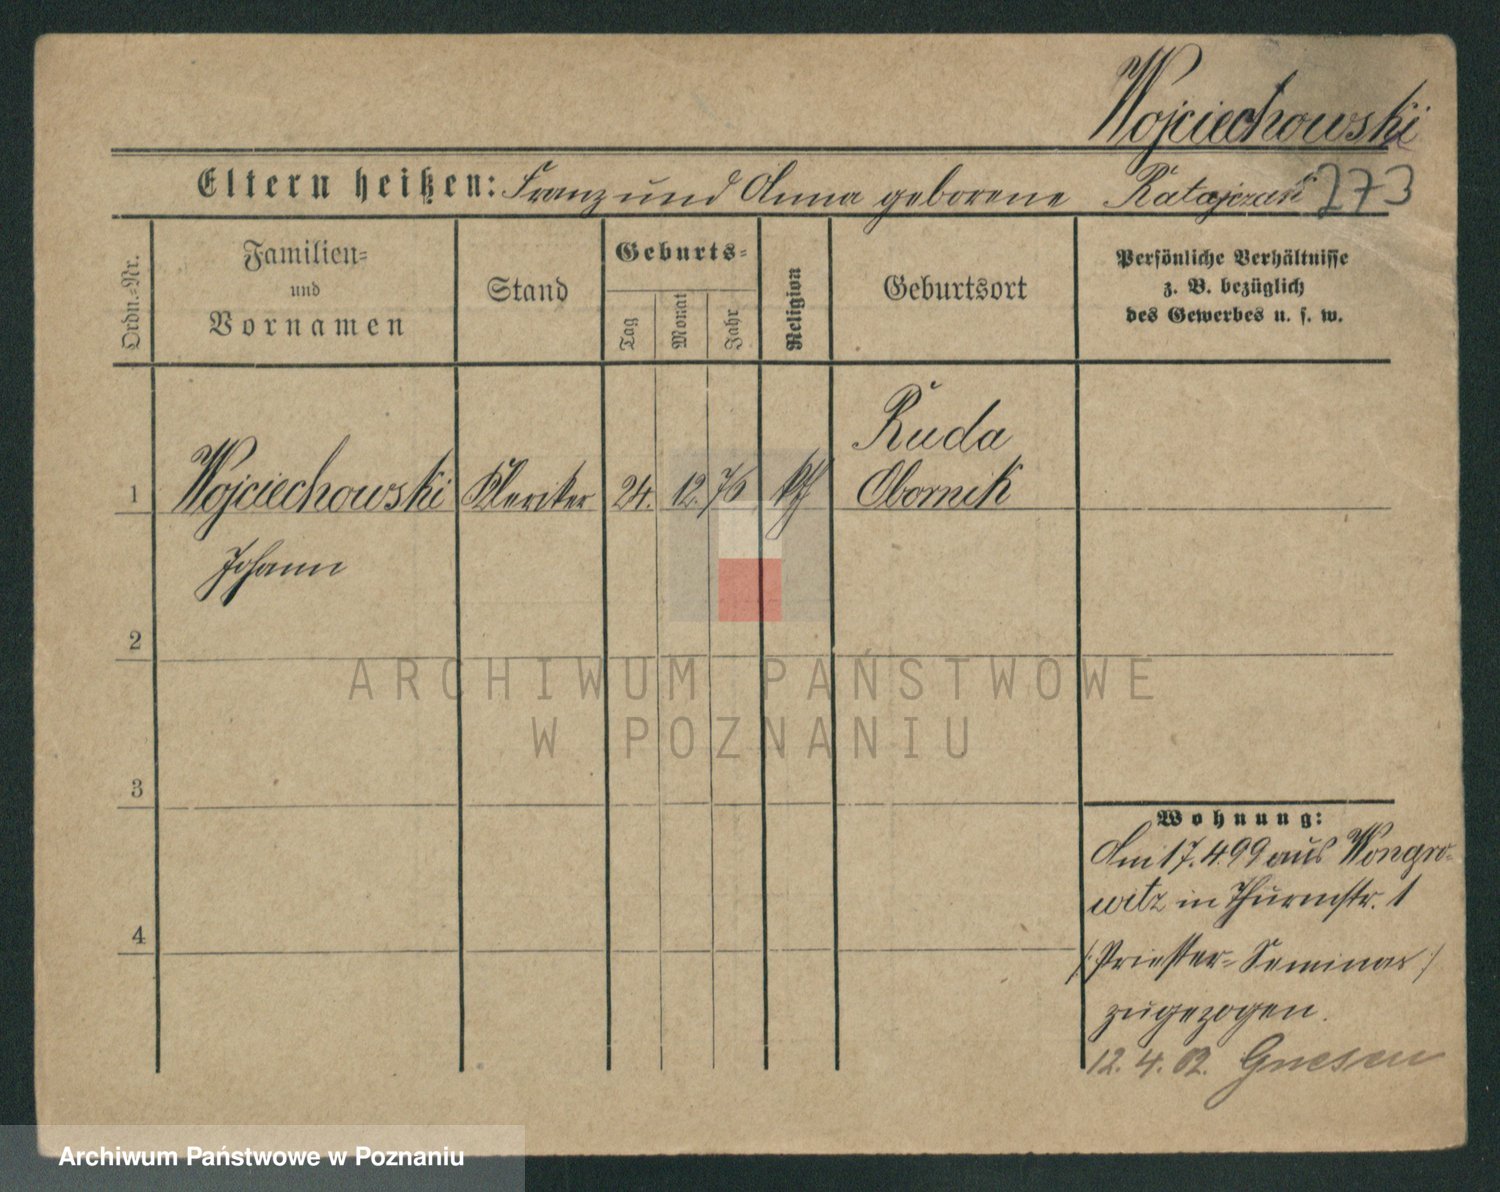 Wojciechowski
Eltern heißen: Franz und Anna geborene Ratajczak 273
Ordn.-Nr.
Familien-
und
Vornamen
Stand
Geburts-
Tag
Monat
Jahr
Religion
Geburtsort
Persönliche Verhältnisse
z. B. bezüglich
des Gewerbes u. s. w.
Ruda
1 Wojciechowski Kleriker 24. 12. 76 kth Obornik
Johann
2
ARCHIWUM PAŃSTWOWE
W POZNANIU
3
Wohnung:
Am 17.4.99 aus Wongro-
witz in Thurmstr. 1
4
(:Priester-Seminar:)
zugezogen.
12. 4. 02. Gnesen
Archiwum Państwowe w Poznaniu